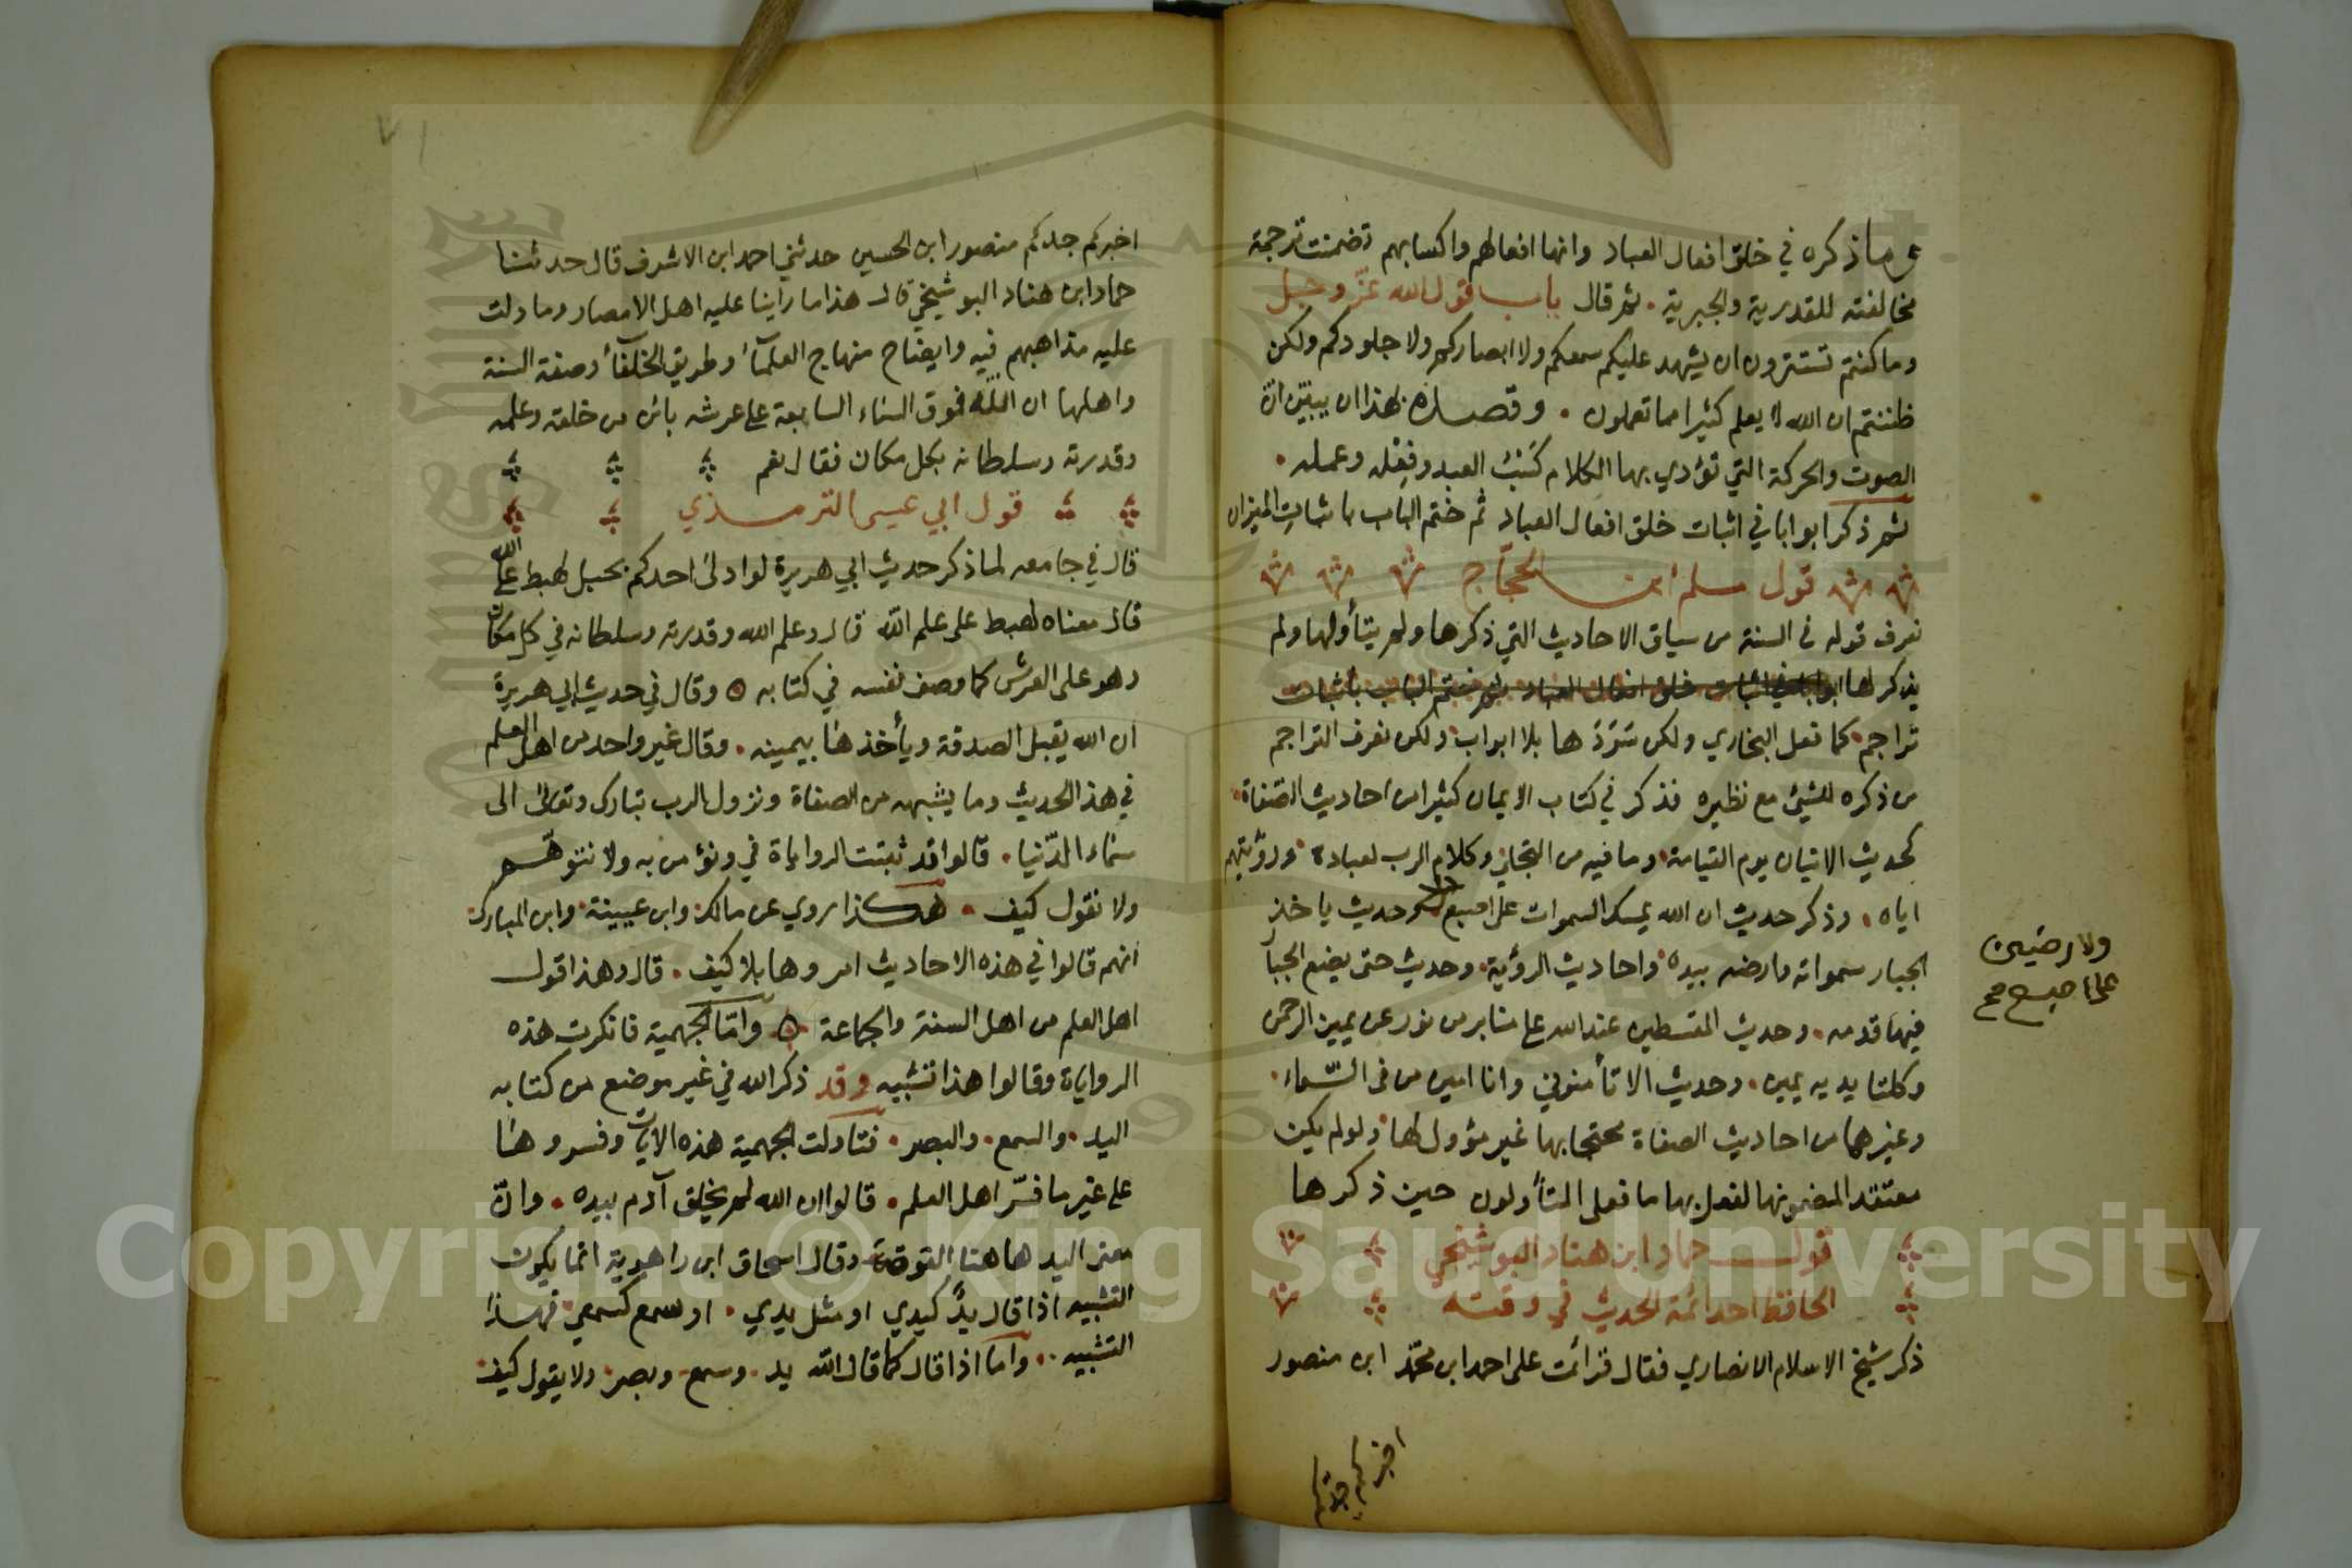 ما ذكره في خلق افعال العباد وانها افعالهم واكسابهم تضمنت ترجمة
مخالفته للقدرية والجبرية . ثم قال باب قول الله عزّ وجل
وما كنتم تستترون ان يشهد عليكم سمعكم ولا ابصاركم ولا جلودكم ولكن
ظننتم ان الله لا يعلم كثيرا مما تعملون . وقصده بهذا ان يبيّن انّ
الصوت والحركة التي تؤدي بها الكلام كسب العبد وفعله وعمله .
ثم ذكر ابوابا في اثبات خلق افعال العباد ثم ختم الباب باثبات الميزان
قول مسلم ابن الحجّاج
نعرف قوله في السنة من سياق الاحاديث التي ذكرها ولم يتأولها ولم
يذكر لها ابوابا في اثبات خلق افعال العباد ثم ختم الباب باثبات
تراجم كما فعل البخاري ولكن سَرَدَ ها بلا ابواب ولكن نعرف التراجم
من ذكره للشيئ مع نظيره فذكر في كتاب الايمان كثيرا من احاديث الصّفاة
كحديث الاتيان يوم القيامة وما فيه من التجلي وكلام الرب لعباده ورؤيتهم
اياه . وذكر حديث ان الله يمسك السموات على اصبع وحديث ياخذ
الجبار سمواته وارضه بيده واحاديث الرؤية وحديث حتى يضع الجبا
فيها قدمه . وحديث المقسطين عند الله على منابر من نور عن يمين الرحمن
وكلتا يديه يمين . وحديث الا تأمنوني وانا امين من في السّماء .
وغيرها من احاديث الصفاة محتجا بها غير مؤول لها ولو لم يكن
معتقد المضمونها لفعل بها ما فعل المتأولون حين ذكرها
قول حماد ابن هناد البوشنجي
الحافظ احد ائمة الحديث في وقته
ذكر شيخ الاسلام الانصاري فقال قرائت على احمد ابن محمّد ابن منصور
اخبركم جدكم
ولارضين
على اصبع صح
اخبركم جدكم منصور ابن الحسين حدثني احمد ابن الاشرف قال حدثنا
حماد ابن هناد البوشنجي قال هذا ما راينا عليه اهل الامصار وما دلت
عليه مذاهبهم فيه وايضاح منهاج العلمآأ وطريق الخلفآأ وصفة السنة
واهلها ان اللّه فوق السماء السابعة على عرشه بائن من خلقه وعلمه
وقدرته وسلطانه بكل مكان فقال نعم
قول ابي عيسى الترمذي
قال في جامعه لما ذكر حديث ابي هريرة لو ادلى احدكم بحبل لهبط على الله
قال معناه لهبط على علم اللّه قال وعلم الله وقدرته وسلطانه في كل مكان
وهو على العرش كما وصف نفسه في كتابه ٥ وقال في حديث ابي هريرة
ان الله يقبل الصدقة ويأخذها بيمينه . وقال غير واحد من اهل العلم
في هذا الحديث وما يشبهه من الصفاة ونزول الرب تبارك وتعالى الى
سماء الدّنيا . قالوا قد ثبتت الرواياة في ونؤمن به ولا نتوهّم
ولا نقول كيف . هكذا روي عن مالك وابن عيينة وابن المبارك
انهم قالوا في هذه الاحاديث امروها بلا كيف . قال وهذا قول
اهل العلم من اهل السنة والجماعة ٥ وامّا الجهمية فانكرت هذه
الرواياة وقالوا هذا تشبيه وقد ذكر الله في غير موضع من كتابه
اليد . والسمع . والبصر . فتاولت الجهمية هذه الايات وفسروها
على غير ما فسّر اهل العلم . قالوا ان الله لم يخلق آدم بيده . وانّ
معنى اليد هاهنا القوة وقال اسحاق ابن راهوية انما يكون
التشبيه اذا قال يدٌ كيدي او مثل يدي . او سمع كسمعي فهذا
التشبيه . واما اذا قال كما قال اللّه يد . وسمع . وبصر ولا يقول كيف
Copyright © King Saud University